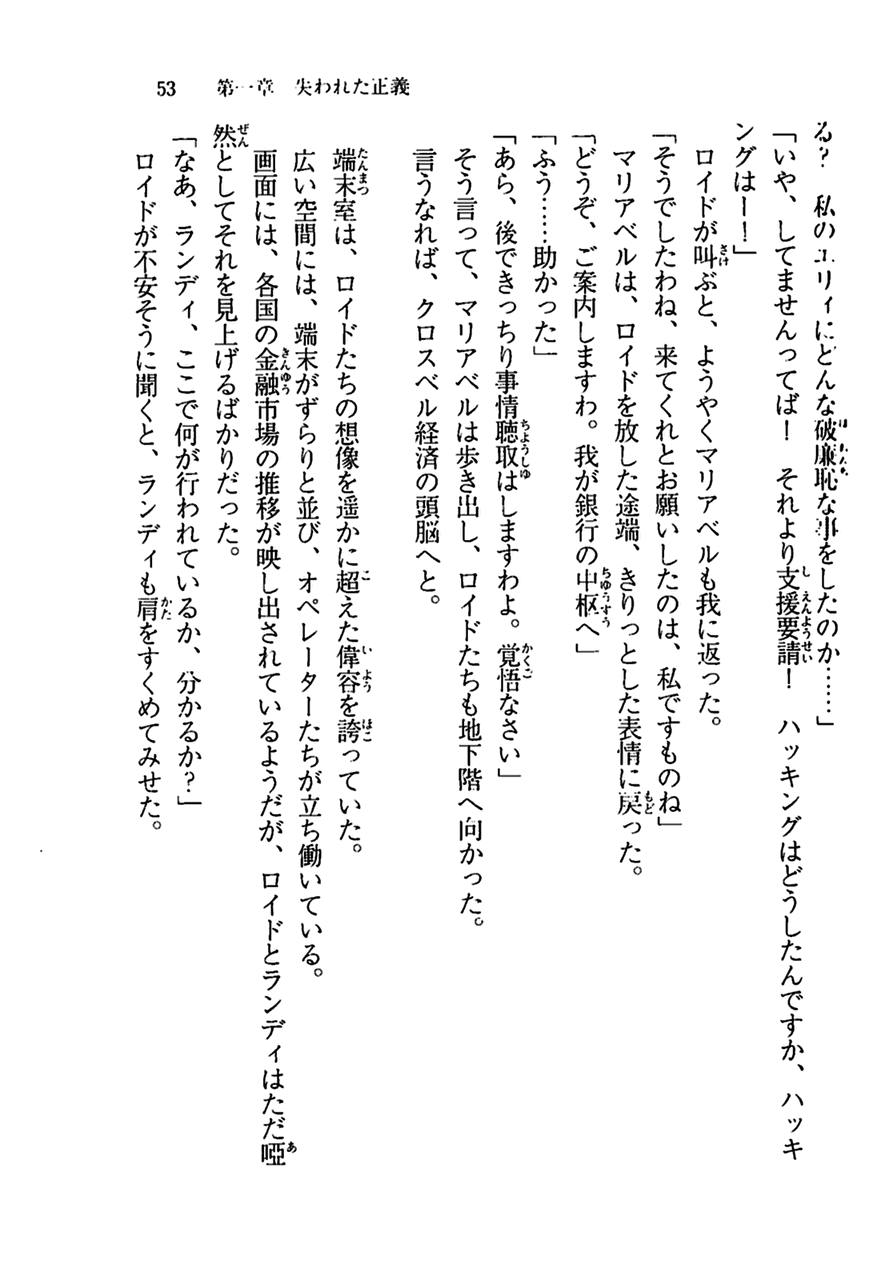 53　第一章　失われた正義
る？　私のエリィにどんな破廉恥な事をしたのか……」
「いや、してませんってば！　それより支援要請！　ハッキングはどうしたんですか、ハッキ
ングはー！」
　ロイドが叫ぶと、ようやくマリアベルも我に返った。
「そうでしたわね、来てくれとお願いしたのは、私ですものね」
　マリアベルは、ロイドを放した途端、きりっとした表情に戻った。
「どうぞ、ご案内しますわ。我が銀行の中枢へ」
「ふう……助かった」
「あら、後できっちり事情聴取はしますわよ。覚悟なさい」
　そう言って、マリアベルは歩き出し、ロイドたちも地下階へ向かった。
　言うなれば、クロスベル経済の頭脳へと。
　端末室は、ロイドたちの想像を遥かに超えた偉容を誇っていた。
　広い空間には、端末がずらりと並び、オペレーターたちが立ち働いている。
　画面には、各国の金融市場の推移が映し出されているようだが、ロイドとランディはただ啞
然としてそれを見上げるばかりだった。
「なあ、ランディ、ここで何が行われているか、分かるか？」
　ロイドが不安そうに聞くと、ランディも肩をすくめてみせた。